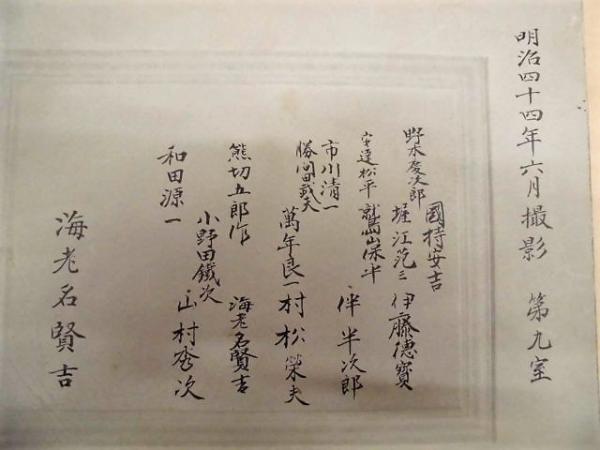 明治四十四年六月撮影 第九室
國持安吉
野木慶次郎 堀江範三 伊藤德寳
安達松平 鷲山保平 伴半次郎
市川清一
勝間田哉夫 萬年良一 村松榮夫
熊切五郎作 海老名賢吉
小野田鐵次
和田源一 山村秀次
海老名賢吉